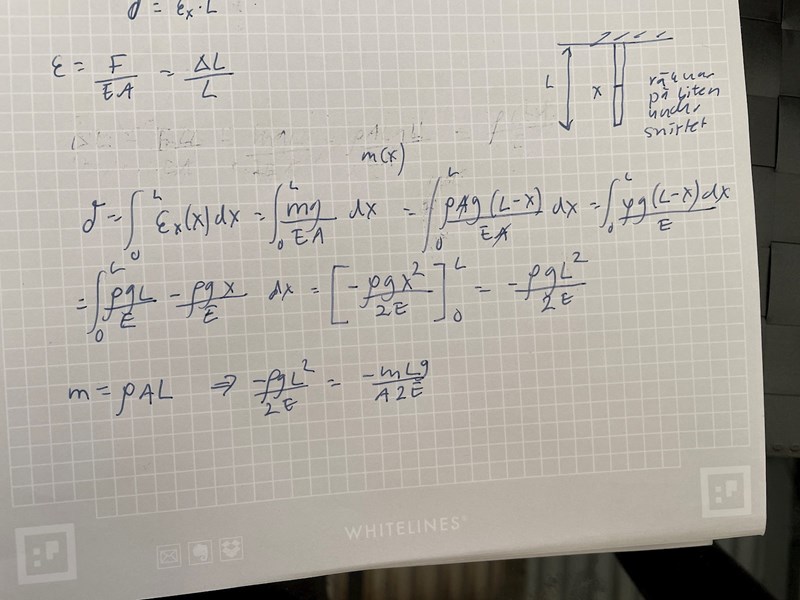 δ = εx · L
ε = F/EA = ΔL/L
L
x
räknar
på biten
under
snittet
m(x)
δ = ∫₀ᴸ εx(x) dx = ∫₀ᴸ mg/EA dx = ∫₀ᴸ ρAg(L-x)/EA dx = ∫₀ᴸ ρg(L-x)dx/E
= ∫₀ᴸ ρgL/E - ρgx/E dx = [-ρgx²/2E]₀ᴸ = -ρgL²/2E
m = ρAL ⇒ -ρgL²/2E = -mLg/A2E
WHITELINES®